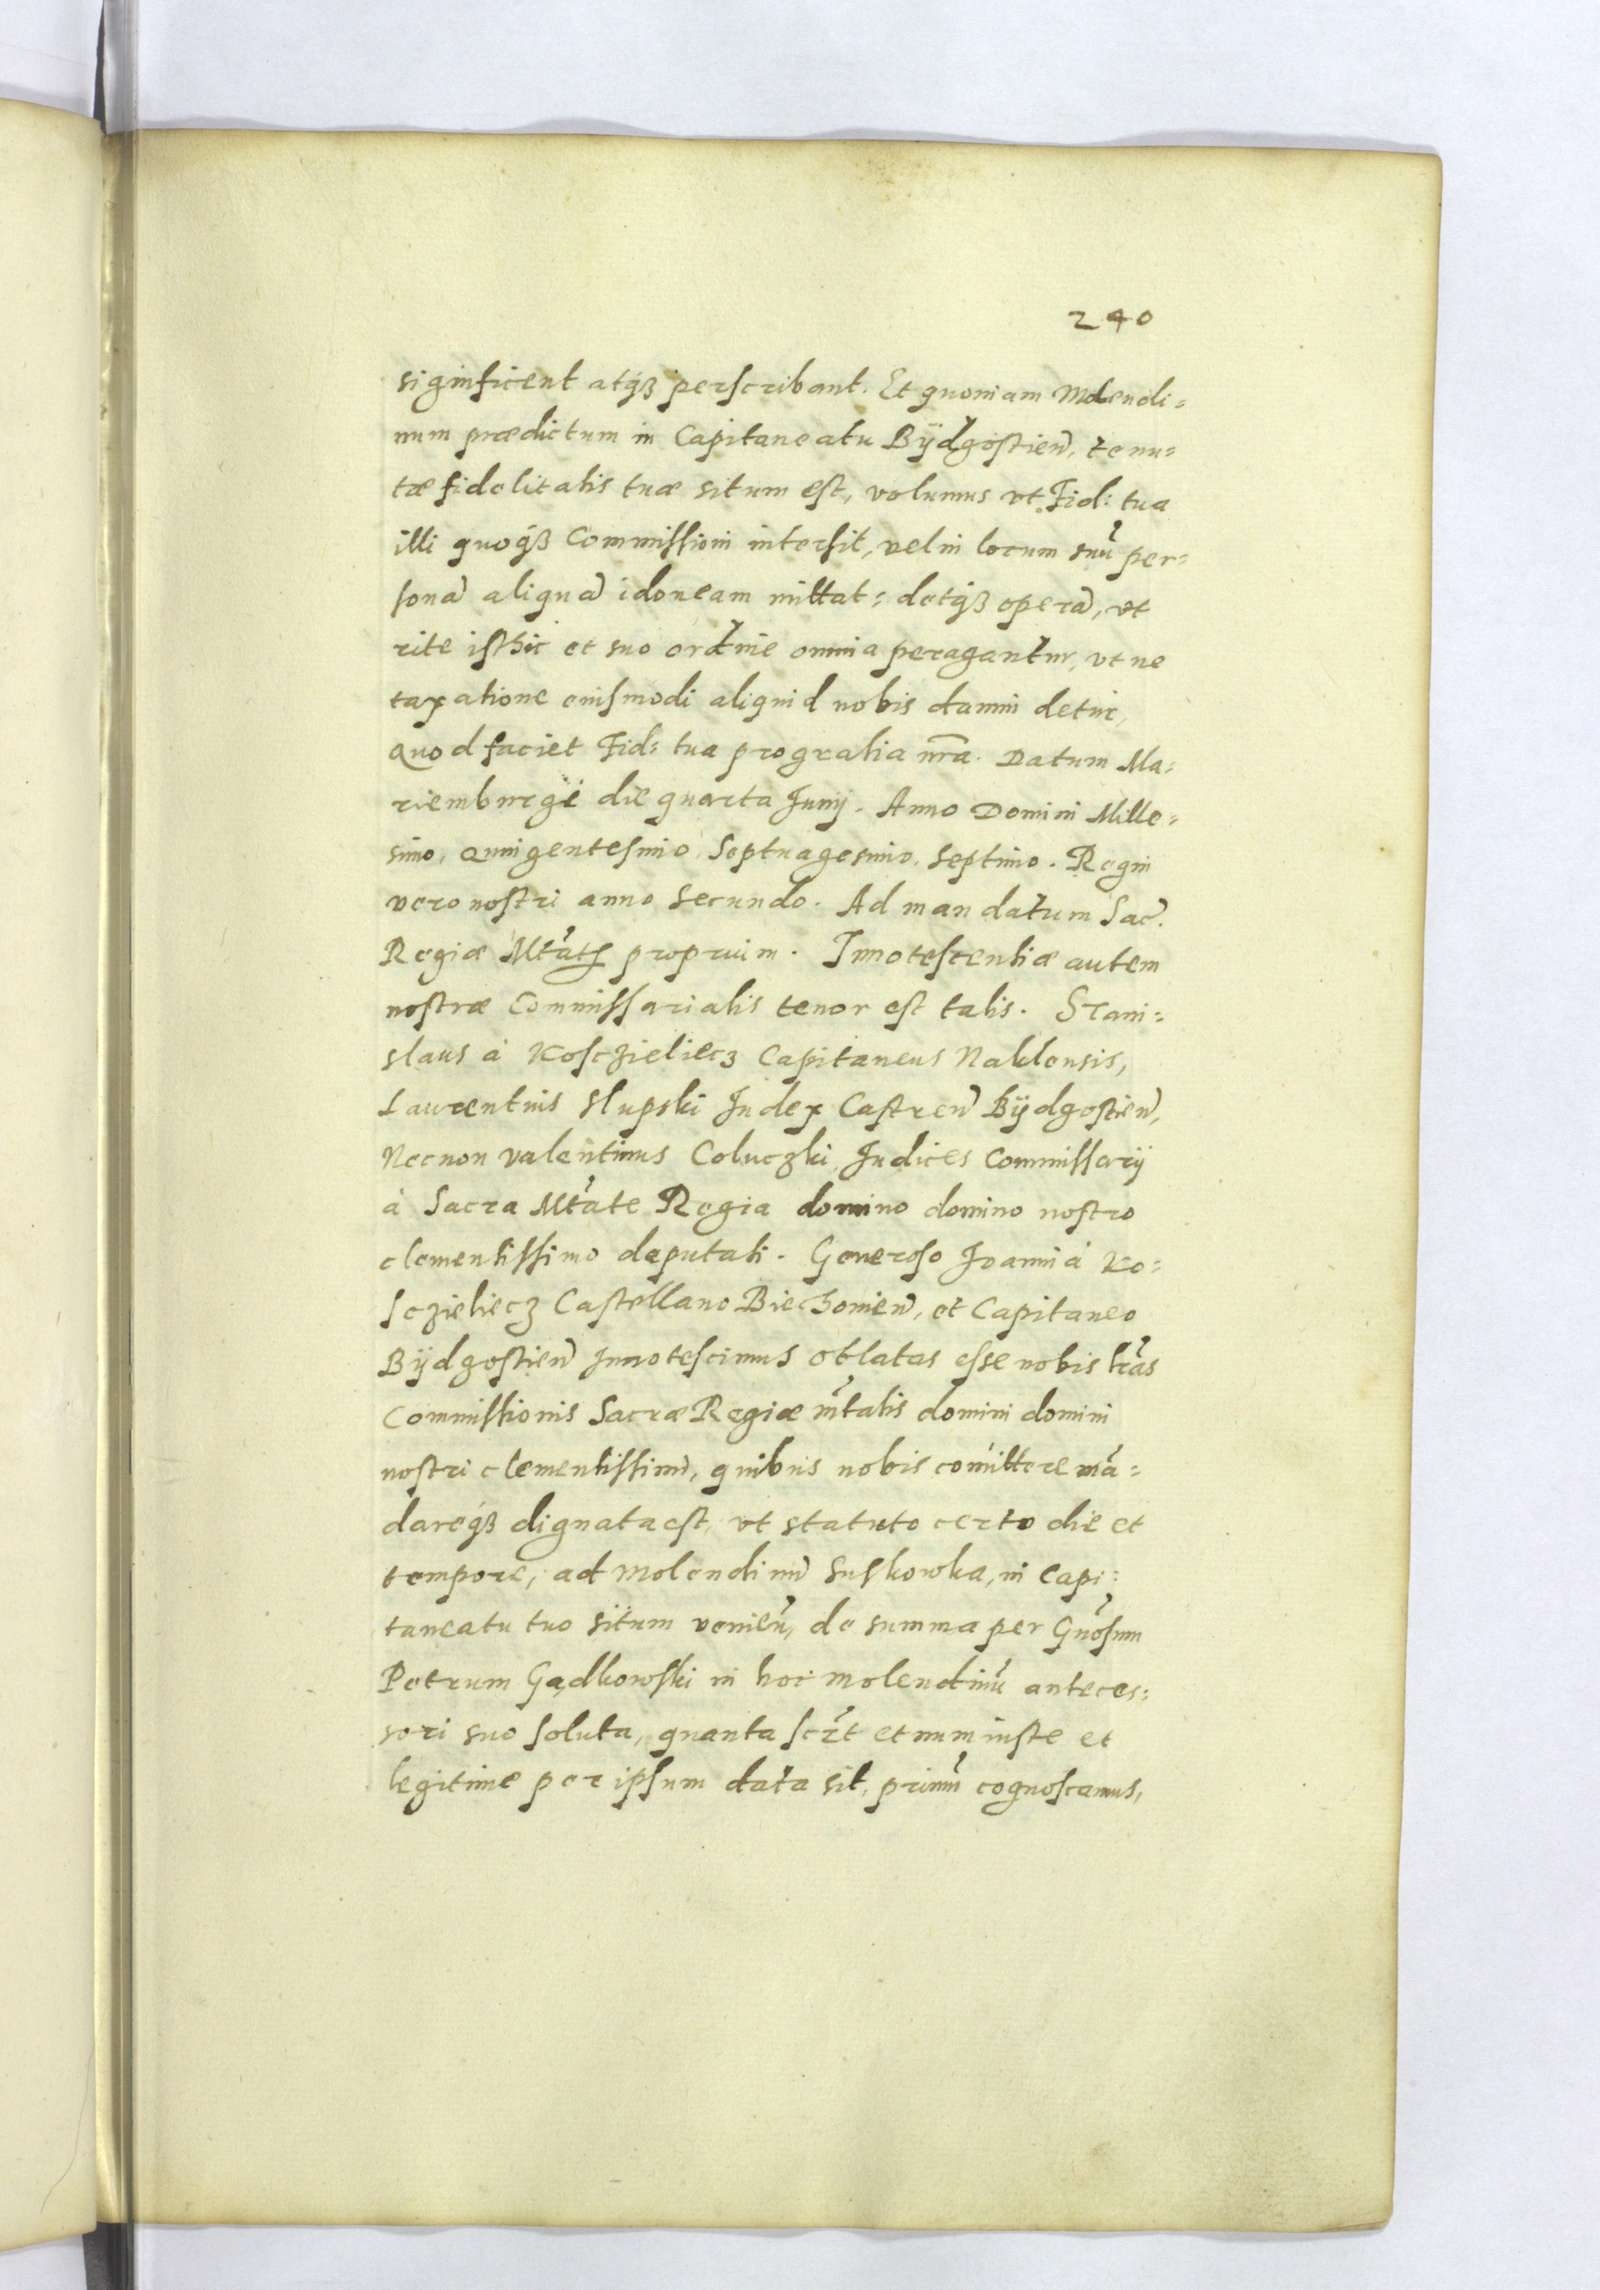 240
significent atq₃ perscribant. Et quoniam Molendi=
num prædictum in Capitaneatu Bÿdgostien̄, tenu=
tæ fidelitatis tuæ situm est, volumus vt Fid: tua
illi quoq₃ Commissioni intersit, vel in locum suū per=
sonā aliquā idoneam mittat: detq₃ operā, vt
rite isthic et suo ordine omnia peragantur, vt ne
taxatione eiusmodi aliquid nobis damni detur,
quod faciet Fid: tua pro gratia nr̄a. Datum Ma=
riemburgi die quarta Junij. Anno Domini Mille=
simo, Quingentesimo, Septuagesimo, Septimo. Regni
vero nostri anno Secundo. Ad mandatum Sac̄.
Regiæ Mtāts proprium. Innotescentiæ autem
nostræ Commissarialis tenor est talis. Stani=
slaus à Kosczieliecz Capitaneus Naklensis,
Laurentius Slupski Judex Castren̄ Bÿdgostien̄,
Necnon Valentinus Coluczki, Judices Commissarij
à Sacra Mtāte Regia domino domino nostro
clementissimo deputati. Generoso Joanni à Ko=
sczieliecz Castellano Biechonien̄, et Capitaneo
Bÿdgostien̄ Innotescimus oblatas esse nobis lr̄as
Commissionis Sacræ Regiæ m̄tatis domini domini
nostri clementissimi, quibus nobis com̄ittere mā=
dareq₃ dignata est, vt statuto certo die et
tempore, ad Molendinū Suskowka, in Capi=
taneatu tuo situm venien̄, de summa per Gn̄osum
Petrum Gądkowski in hoc molendinū anteces=
sori suo soluta, quanta scr̄t et num iuste et
legitime per ipsum data sit, primū cognoscamus,